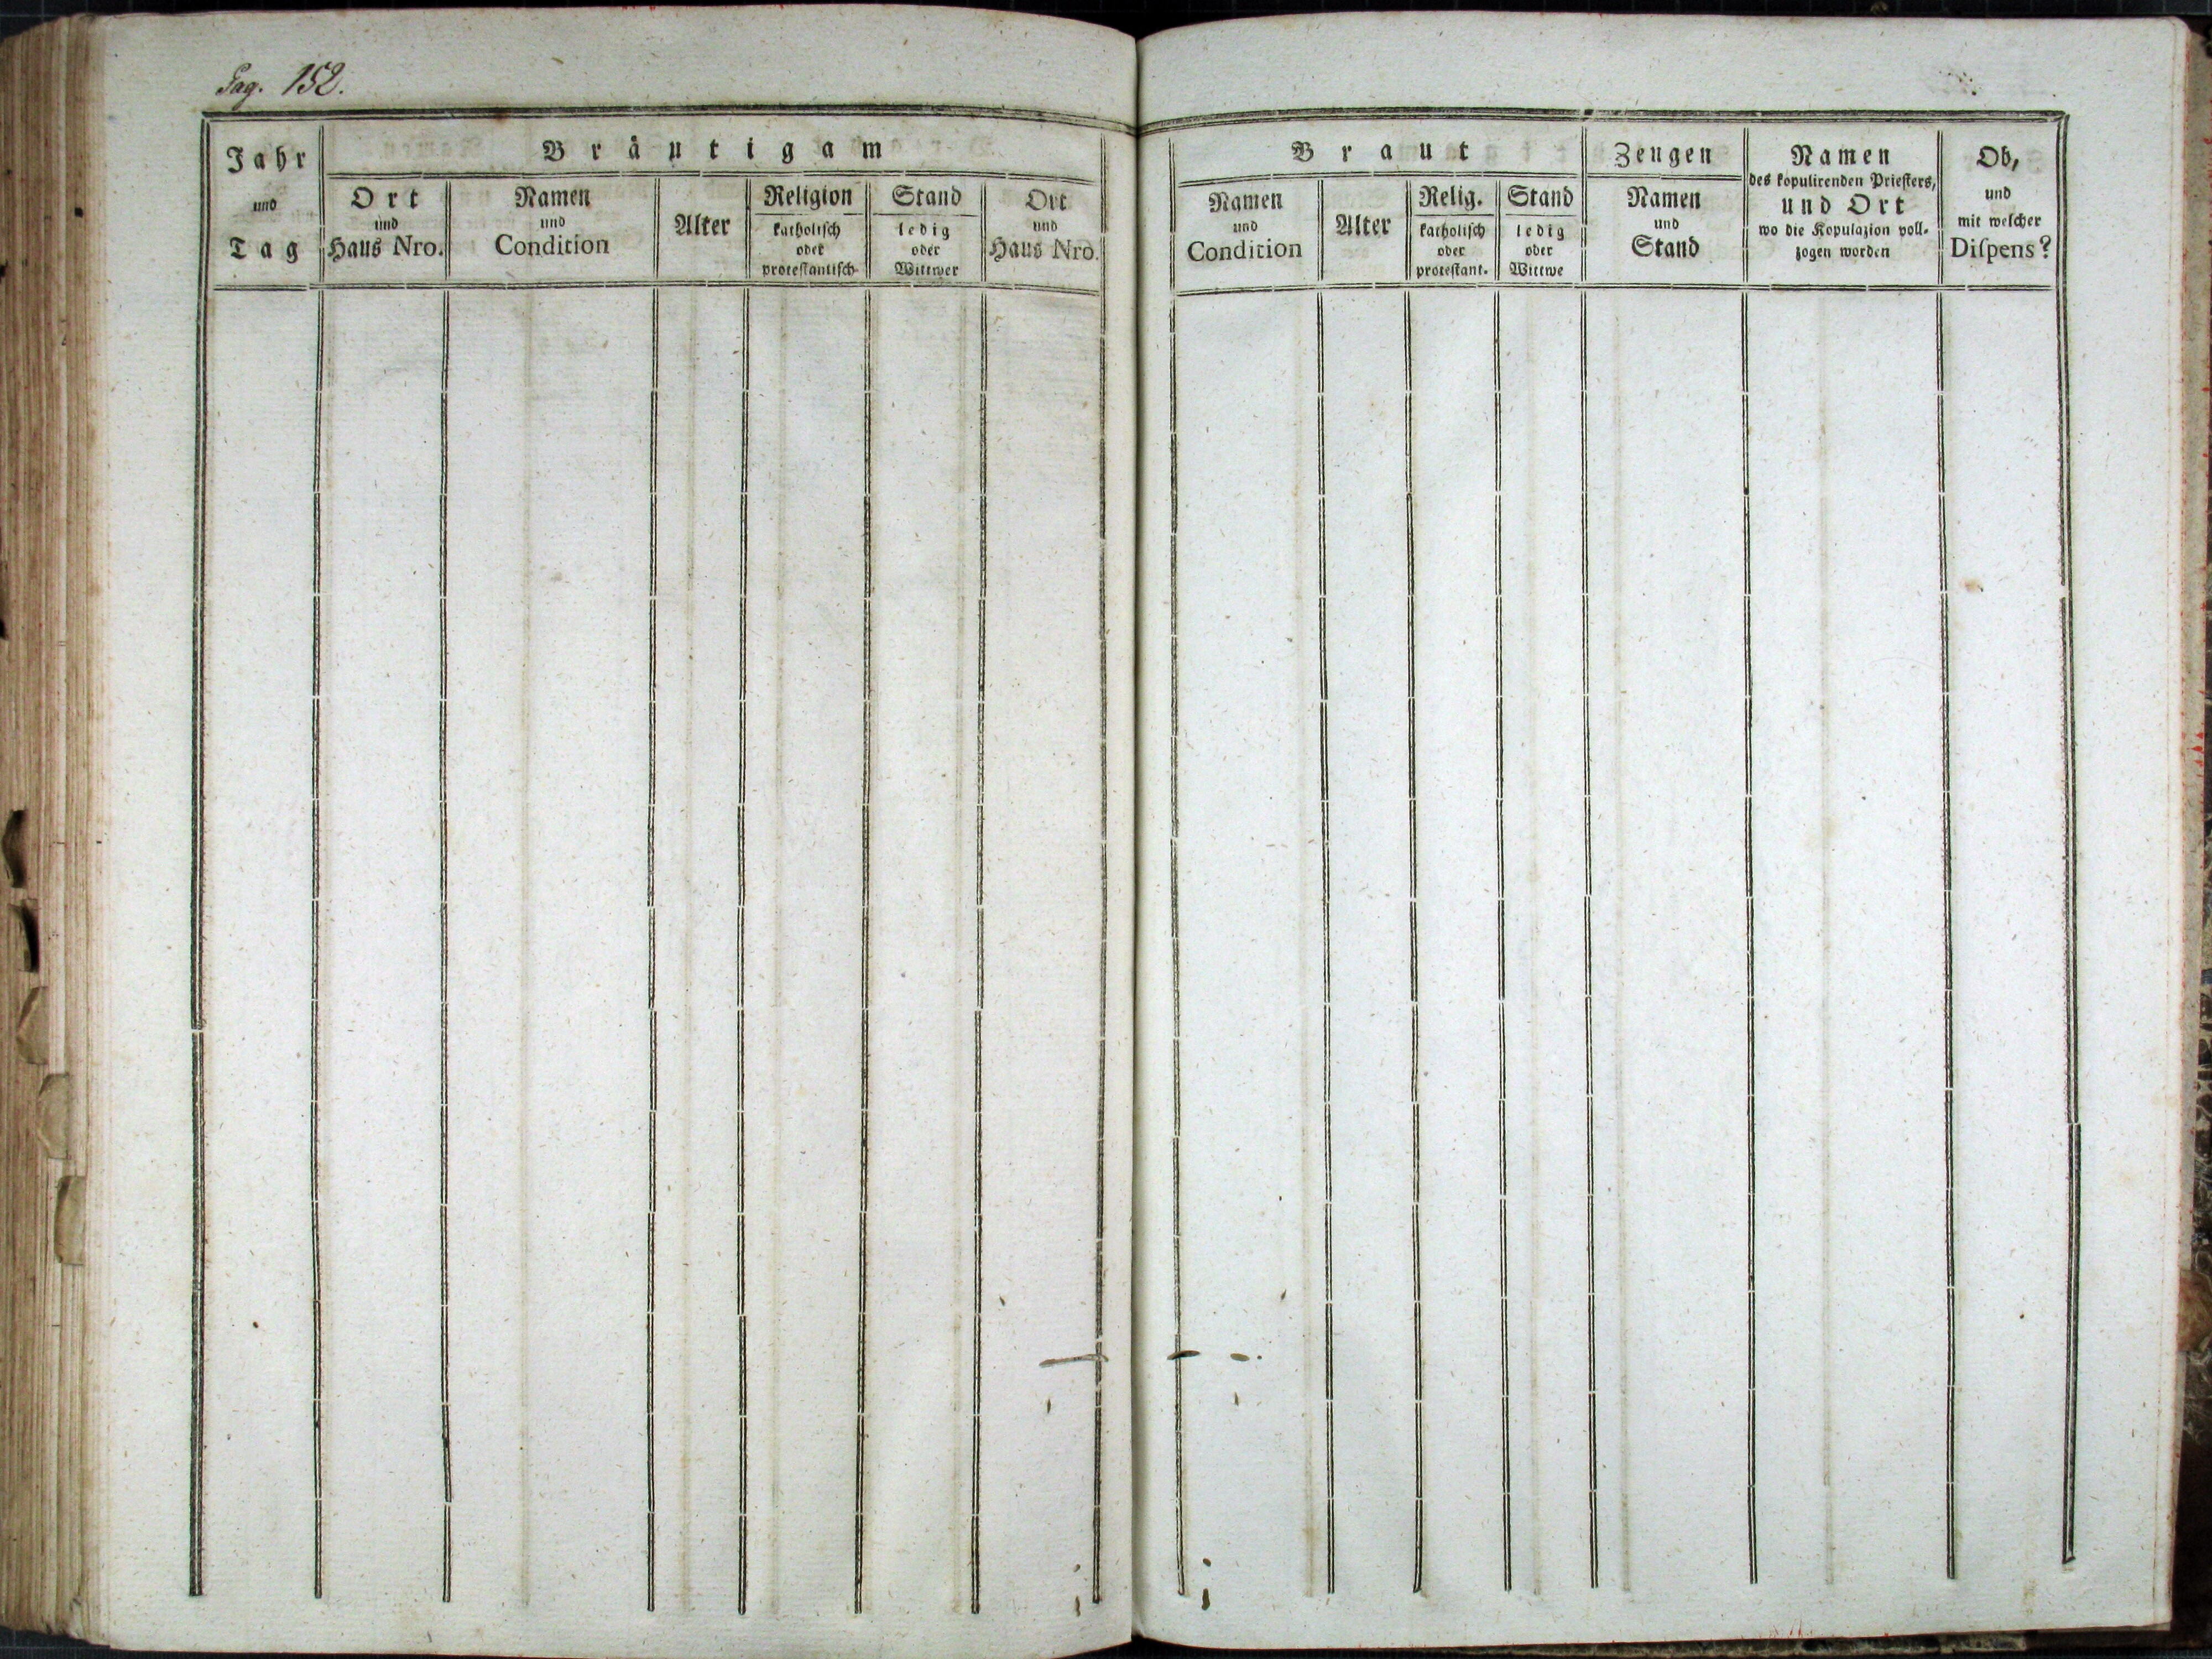 Pag. 152.
Jahr
und
Tag
Bräutigam
Ort
und
Haus Nro.
Namen
und
Condition
Alter
Religion
katholisch
oder
protestantisch
Stand
ledig
oder
Wittwer
Ort
und
Haus Nro.
Braut
Namen
und
Condition
Alter
Relig.
katholisch
oder
protestant.
Stand
ledig
oder
Wittwe
Zeugen
Namen
und
Stand
Namen
des kopulirenden Priesters,
und Ort
wo die Kopulazion voll-
zogen worden
Ob,
und
mit welcher
Diſpens?